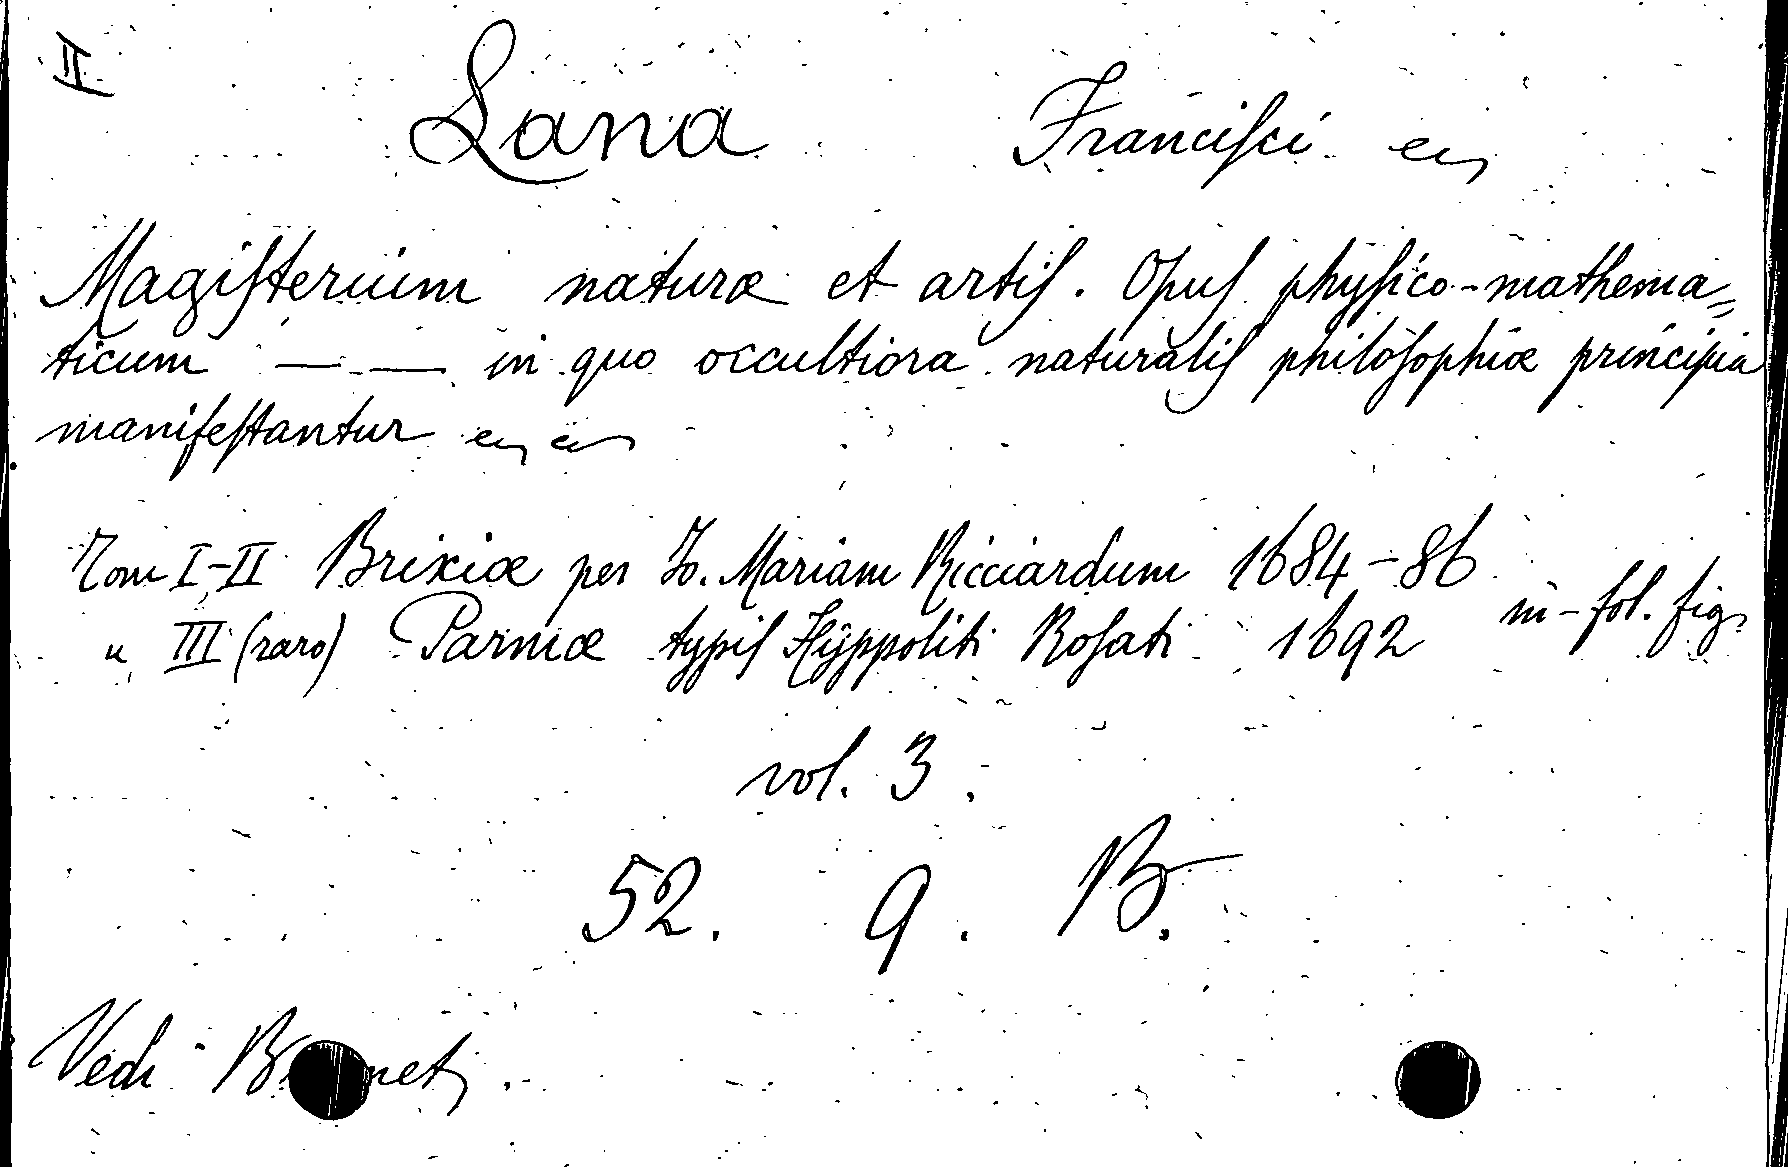 II
Lana Francisci ec,
Magisterium naturæ et artis. Opus physico-mathema=
ticum — — in quo occultiora naturalis philosophiæ principia
manifestantur ec, ec
Tom I-II Brixiæ per Jo. Mariam Ricciardum 1684-86
" III (raro) Parmæ typis Hÿppoliti Rosati 1692 in-fol. fig.
vol. 3.
52. 9. B.
Vedi